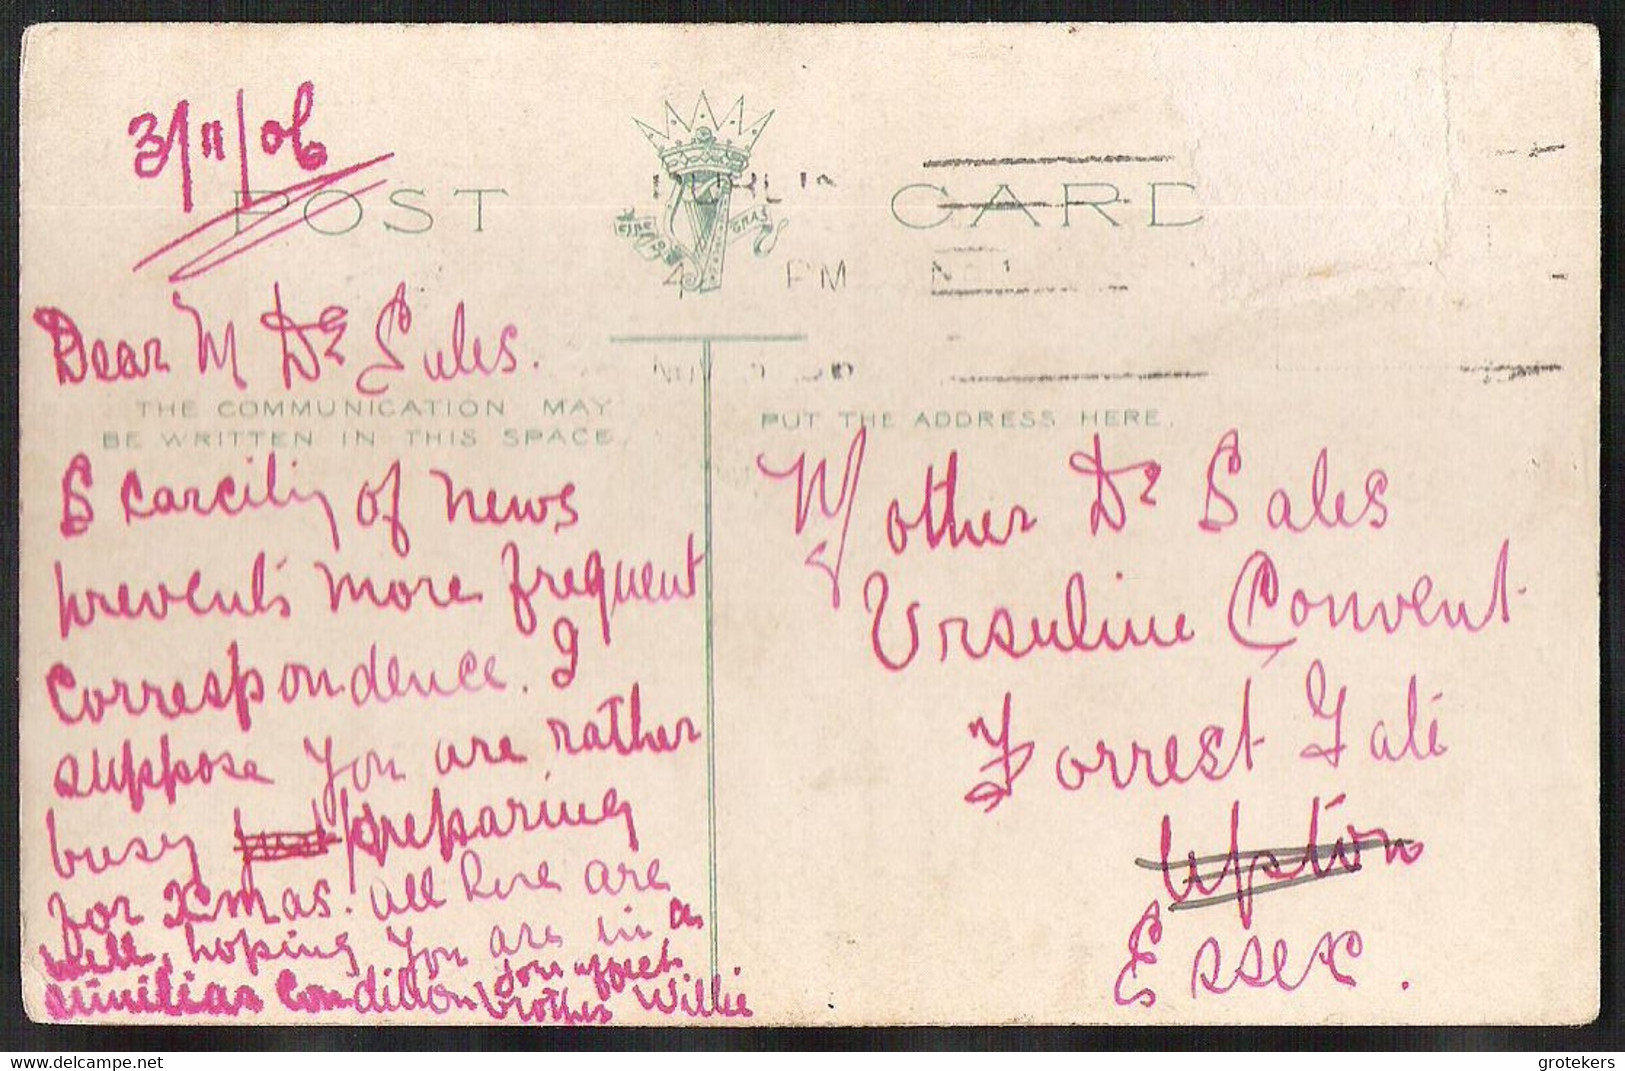 3/11/06
POST CARD
DUBLIN
4 PM
Dear M De Sales.
THE COMMUNICATION MAY
BE WRITTEN IN THIS SPACE.
Scarcity of news
prevents more frequent
correspondence. I
suppose you are rather
busy just preparing
for Xmas. all here are
well, hoping you are in a
similiar Condition your affect
brother Willie
PUT THE ADDRESS HERE.
Mother De Sales
Ursuline Convent
Forrest Gate
Upton
Essex.
grotekers